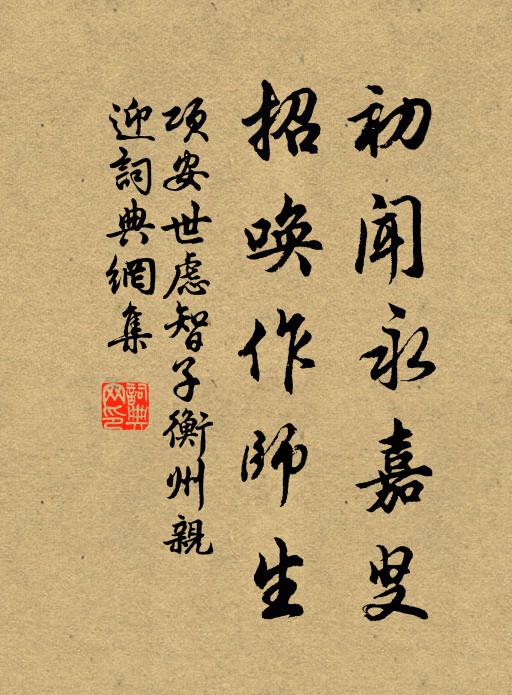 初闻永嘉叟
招唤作师生
项安世虑智子衡州親
迎詞典網集
詞典
网印